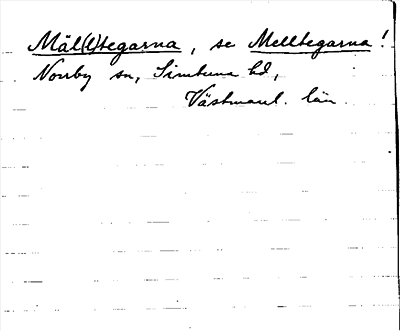 Mäl(l)tegarna, se Melltegarna!
Norrby sn, Simtuna hd,
Västmanl. län.